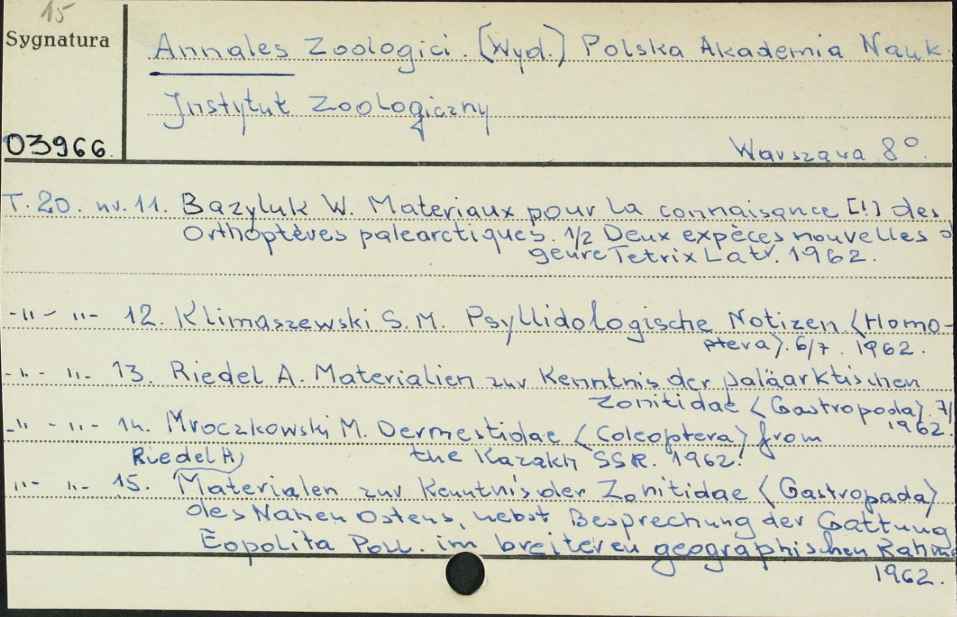 15
Sygnatura
Annales Zoologici. (Wyd.) Polska Akademia Nauk.
Instytut Zoologiczny
03966.
Warszawa 8°.
T. 20. nr. 11. Bazyluk W. Materiaux pour la connaisance [!] des
Orthoptères palearctiques. 1/2 Deux expèces nouvelles
genre Tetrix Latr. 1962.
-"- "- 12. Klimaszewski S. M. Psyllidologische Notizen <Homo-
ptera>. 6/7. 1962.
-"- "- 13. Riedel A. Materialien zur Kenntnis der paläarktischen
Zonitidae <Gastropoda>. 7/
1962.
-"- "- 14. Mroczkowski M. Dermestidae <Coleoptera> from
the Kazakh SSR. 1962.
Riedel A)
"- "- 15. Materialen zur Kenntnis der Zonitidae <Gastropada>
des Nahen Ostens, nebst Besprechung der Gattung
Eopolita Poll. im breiteren geographischen Rahme
1962.